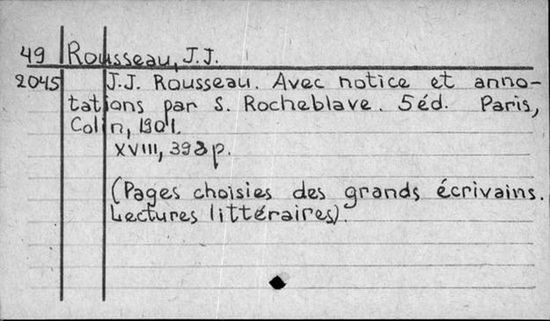 49 Rousseau, J.J.
2045 J.J. Rousseau. Avec notice et anno-
tations par S. Rocheblave. 5éd. Paris,
Colin, 1901.
XVIII, 393p.
(Pages choisies des grands écrivains.
Lectures littéraires).